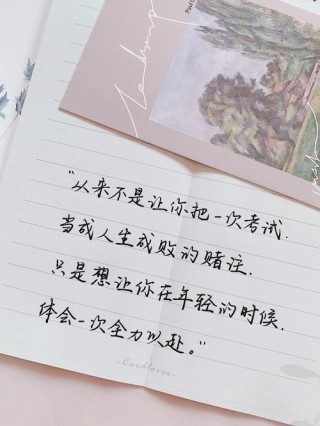 “从来不是让你把一次考试.
当成人生成败的赌注.
只是想让你在年轻的时候.
体会一次全力以赴。”
Cardlover